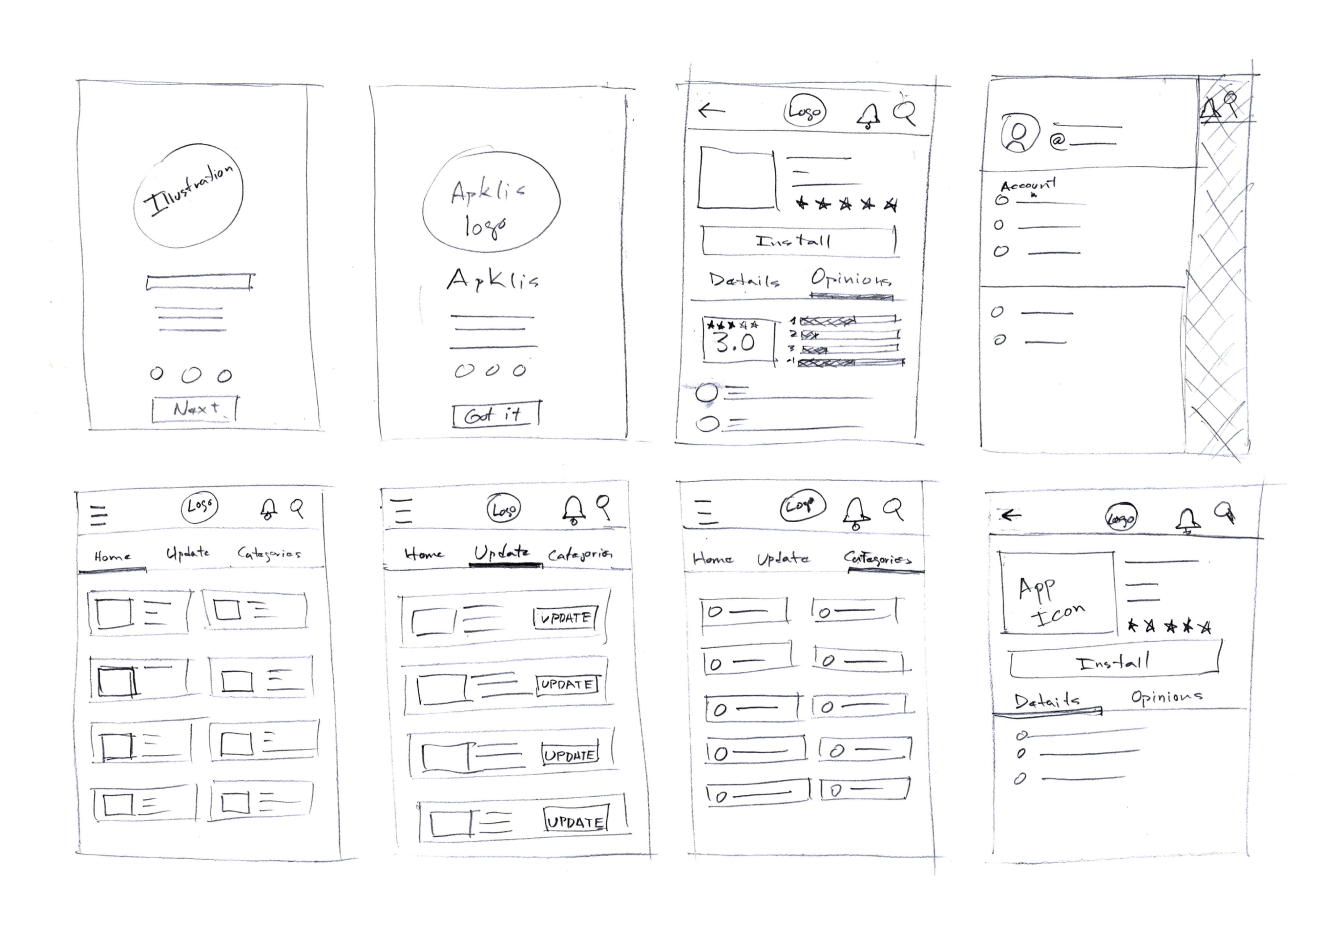 Illustration
Next
Apklis
logo
Apklis
Got it
Logo
Install
Details Opinions
3.0
1
2
3
4
@
Account
Logo
Home Update Categories
Logo
Home Update Categories
UPDATE
UPDATE
UPDATE
UPDATE
Logo
Home Update Categories
Logo
App
Icon
Install
Details Opinions